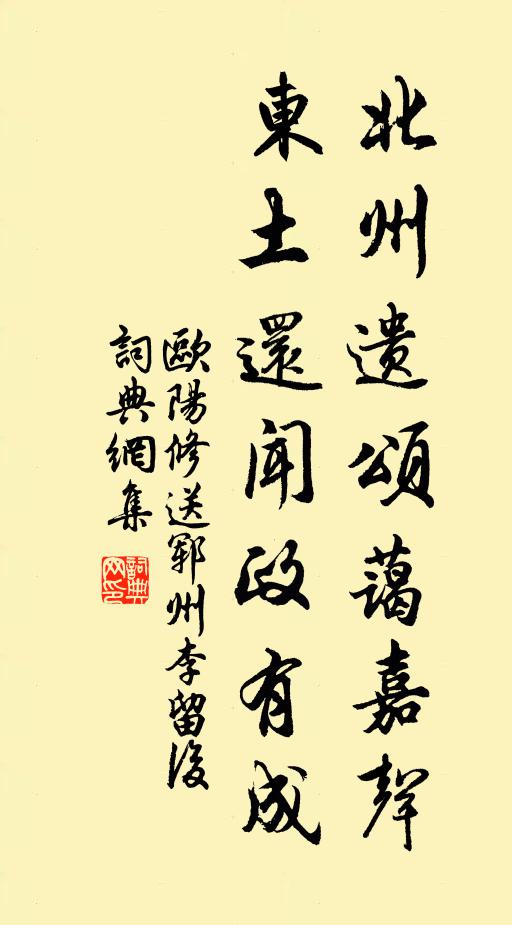 北州遺頌藹嘉聲
東土還聞政有成
歐陽修送鄆州李留後
詞典網集
詞典網印